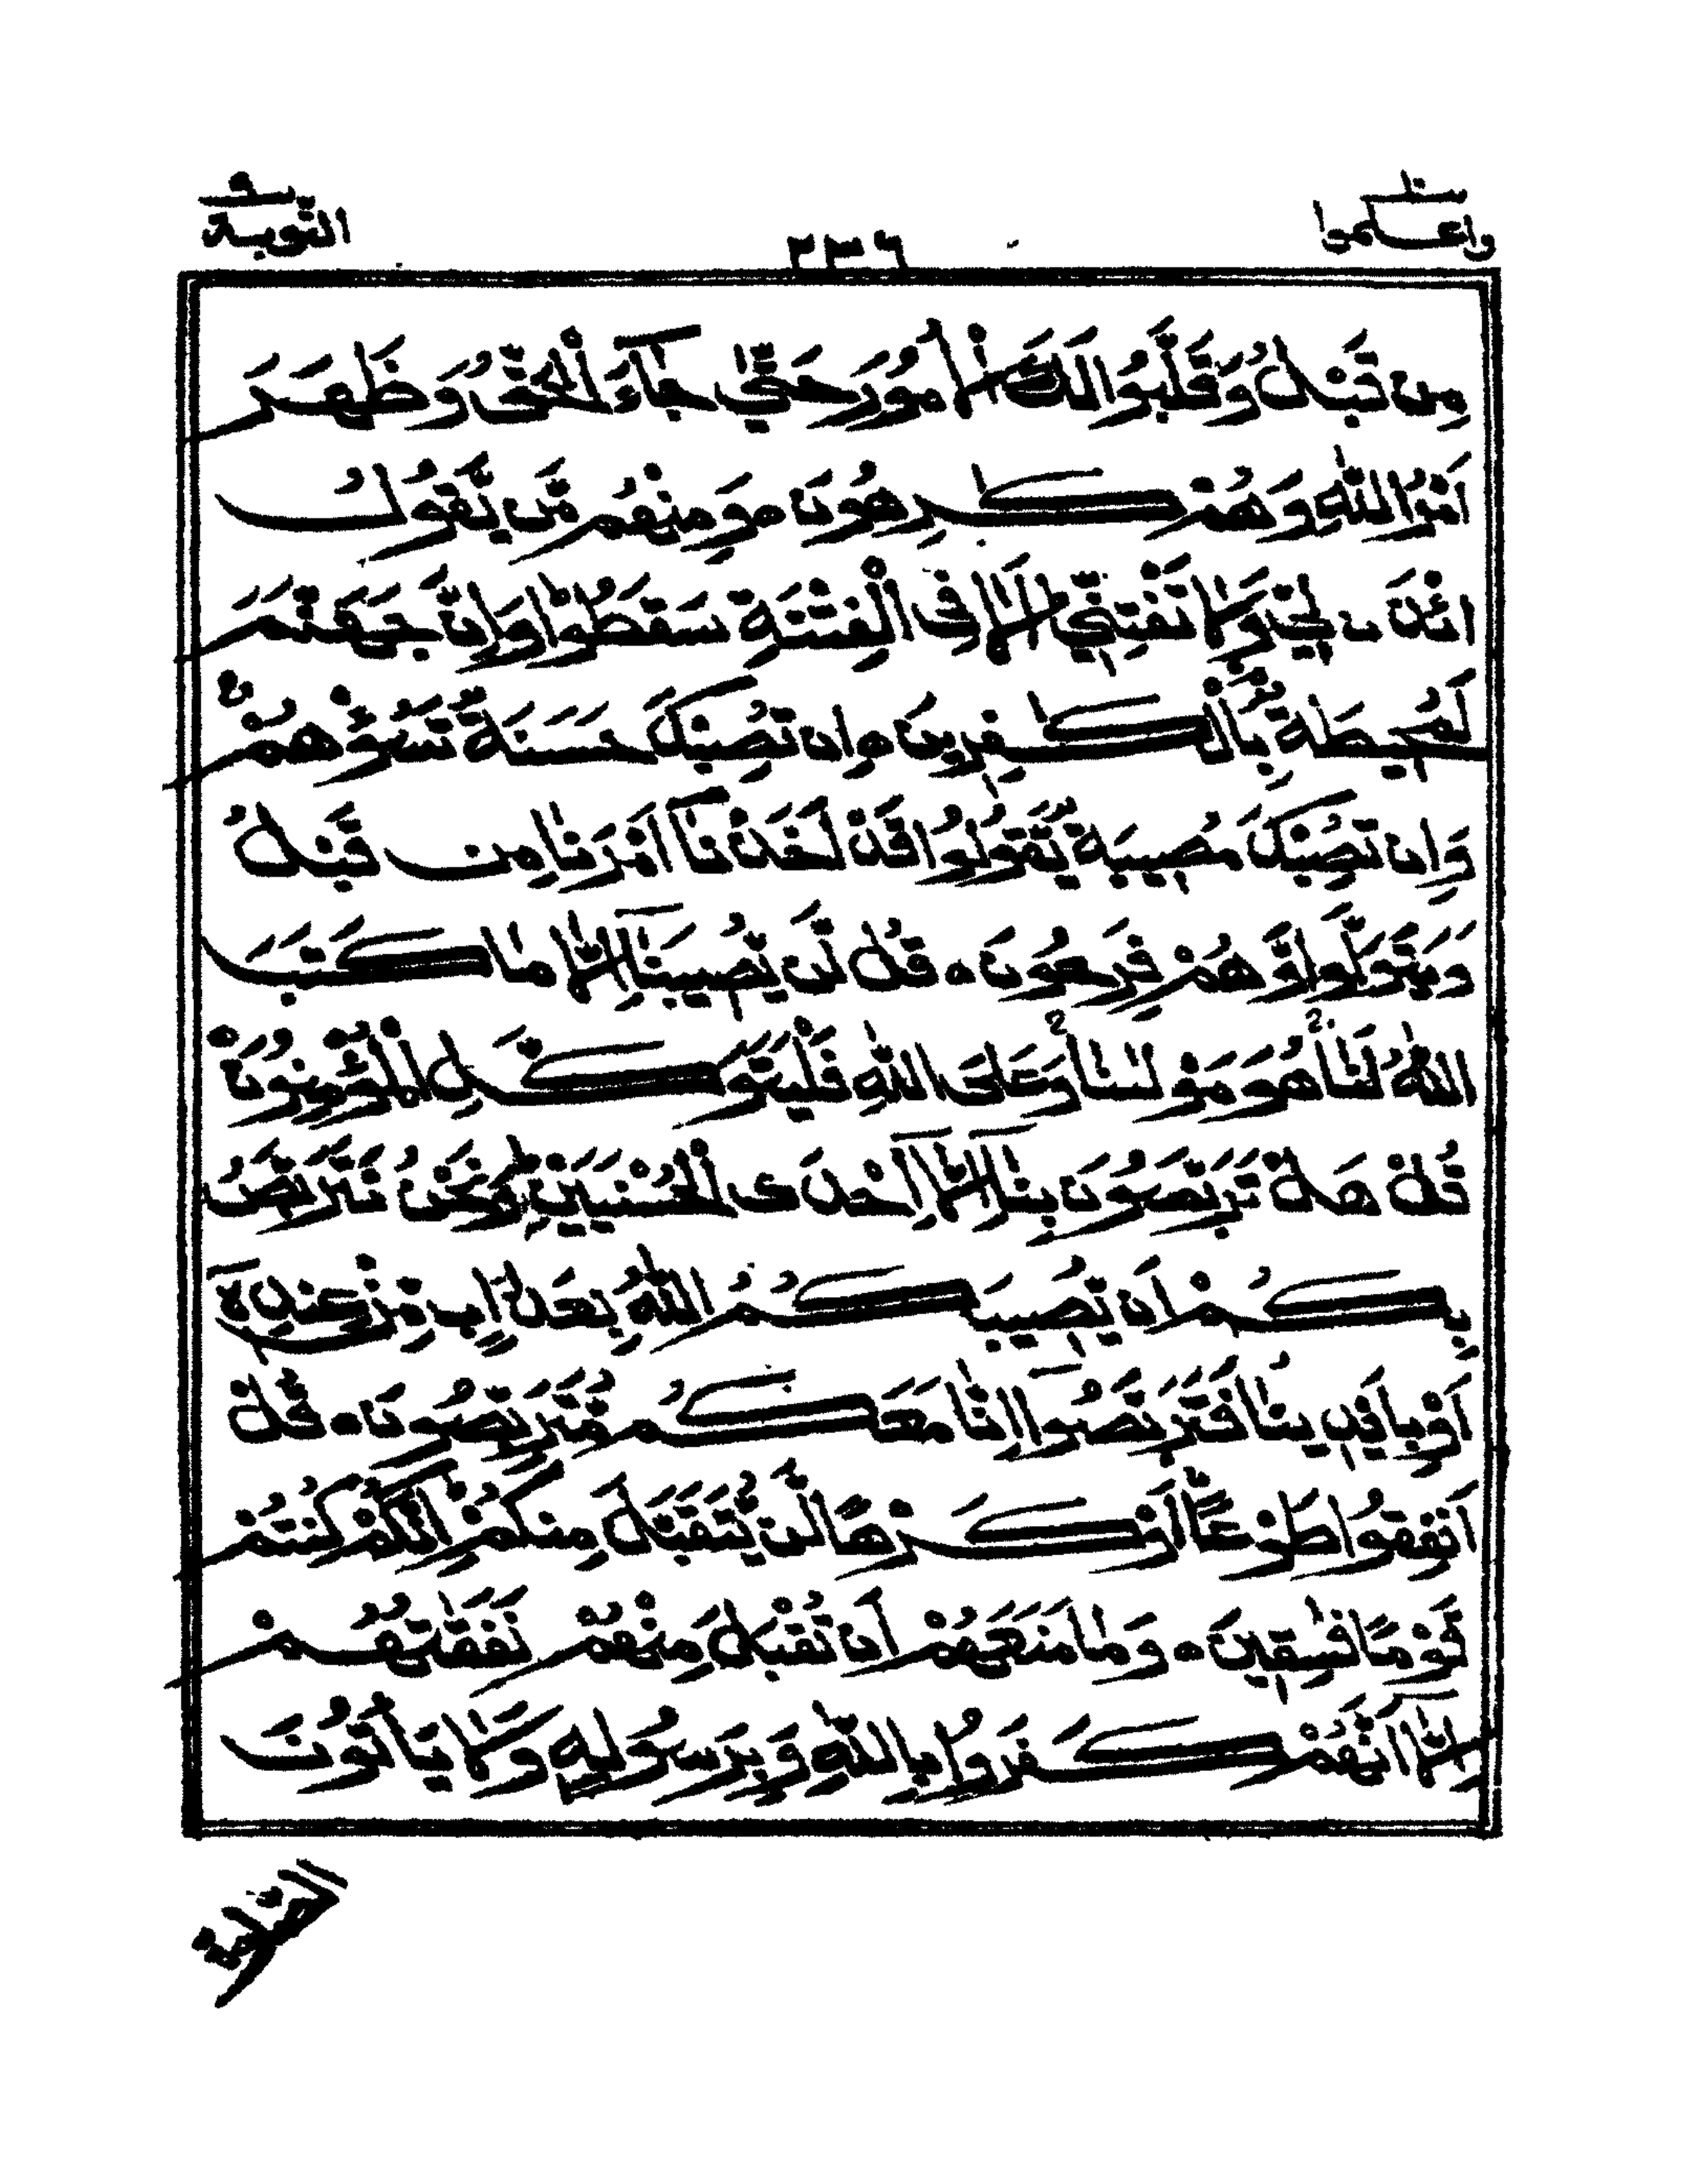 واعلموا ٢٣٦ التوبة
مِن قَبْلُ وَقَلَّبُوا لَكَ الْأُمُورَ حَتّٰى جَآءَ الْحَقُّ وَظَهَرَ
اَمْرُ اللّٰهِ وَهُمْ كٰرِهُونَ ه وَمِنْهُم مَّن يَّقُولُ
ائْذَن لِّي وَلَا تَفْتِنِّي اَلَا فِي الْفِتْنَةِ سَقَطُوا وَاِنَّ جَهَنَّمَ
لَمُحِيطَةٌ بِالْكٰفِرِينَ ه اِن تُصِبْكَ حَسَنَةٌ تَسُؤْهُمْ
وَاِن تُصِبْكَ مُصِيبَةٌ يَّقُولُوا قَدْ اَخَذْنَآ اَمْرَنَا مِن قَبْلُ
وَيَتَوَلَّوا وَّهُمْ فَرِحُونَ ه قُل لَّن يُّصِيبَنَآ اِلَّا مَا كَتَبَ
اللّٰهُ لَنَا هُوَ مَوْلٰنَا وَعَلَى اللّٰهِ فَلْيَتَوَكَّلِ الْمُؤْمِنُونَ
قُلْ هَلْ تَرَبَّصُونَ بِنَآ اِلَّآ اِحْدَى الْحُسْنَيَيْنِ وَنَحْنُ نَتَرَبَّصُ
بِكُمْ اَن يُّصِيبَكُمُ اللّٰهُ بِعَذَابٍ مِّنْ عِندِهٓ
اَوْ بِاَيْدِينَا فَتَرَبَّصُوٓا اِنَّا مَعَكُم مُّتَرَبِّصُونَ ه قُلْ
اَنفِقُوا طَوْعًا اَوْ كَرْهًا لَّن يُّتَقَبَّلَ مِنكُمْ اِنَّكُمْ كُنتُمْ
قَوْمًا فٰسِقِينَ ه وَمَا مَنَعَهُمْ اَن تُقْبَلَ مِنْهُمْ نَفَقٰتُهُمْ
اِلَّآ اَنَّهُمْ كَفَرُوا بِاللّٰهِ وَبِرَسُولِهٖ وَلَا يَاْتُونَ
الصَّلٰوةَ